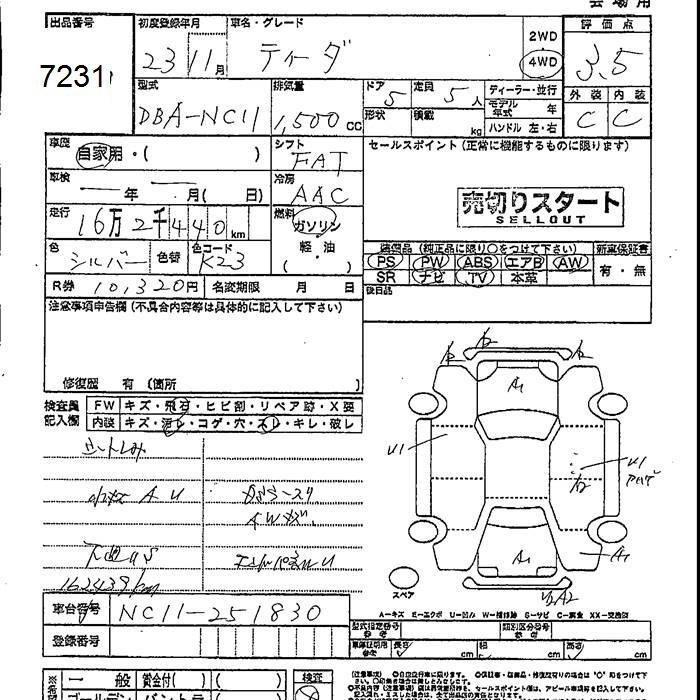 会場用
出品番号 初度登録年月 車名・グレード 評価点
7231 23 11月 ティーダ 2WD 4WD 3.5
型式 排気量 ドア 定員 ディーラー・並行 外装 内装
DBA-NC11 1,500cc 5 5人 モデル年式 年 C C
形状 積載 kg ハンドル 左・右
車歴 自家用・( ) シフト FAT セールスポイント(正常に機能するものに限ります)
車検 年 月( 日) 冷房 AAC 売切りスタート
SELLOUT
走行 16万2千440km 燃料 ガソリン
軽・油
( )
色 シルバー 色替 色コード K23 装備品(純正品に限り○をつけて下さい) 新車保証書
PS PW ABS エアB AW 有・無
SR ナビ TV 本革
R券 10,320円 名変期限 月 日 後日品
注意事項申告欄(不具合内容等は具体的に記入して下さい)
修復歴 有 (箇所 )
検査員記入欄 FW キズ・飛石・ヒビ割・リペア跡・X要
内装 キズ・汚レ・コゲ・穴・スレ・キレ・破レ
小キズ A U
AWキズ
エンドパネルU
下廻りS
162439km
A1
U1
U1
A2
A1
A1
U2A2
スペア
A-キズ E-エクボ U-凹ミ W-補修跡 S-サビ C-腐食 XX-交換済
車台番号 NC11-251830
型式指定番号 類別区分番号
登録番号
長さ cm 幅 cm 高さ cm
一般 賞金付( ) ( ) 検査
ゴールデン バントラ